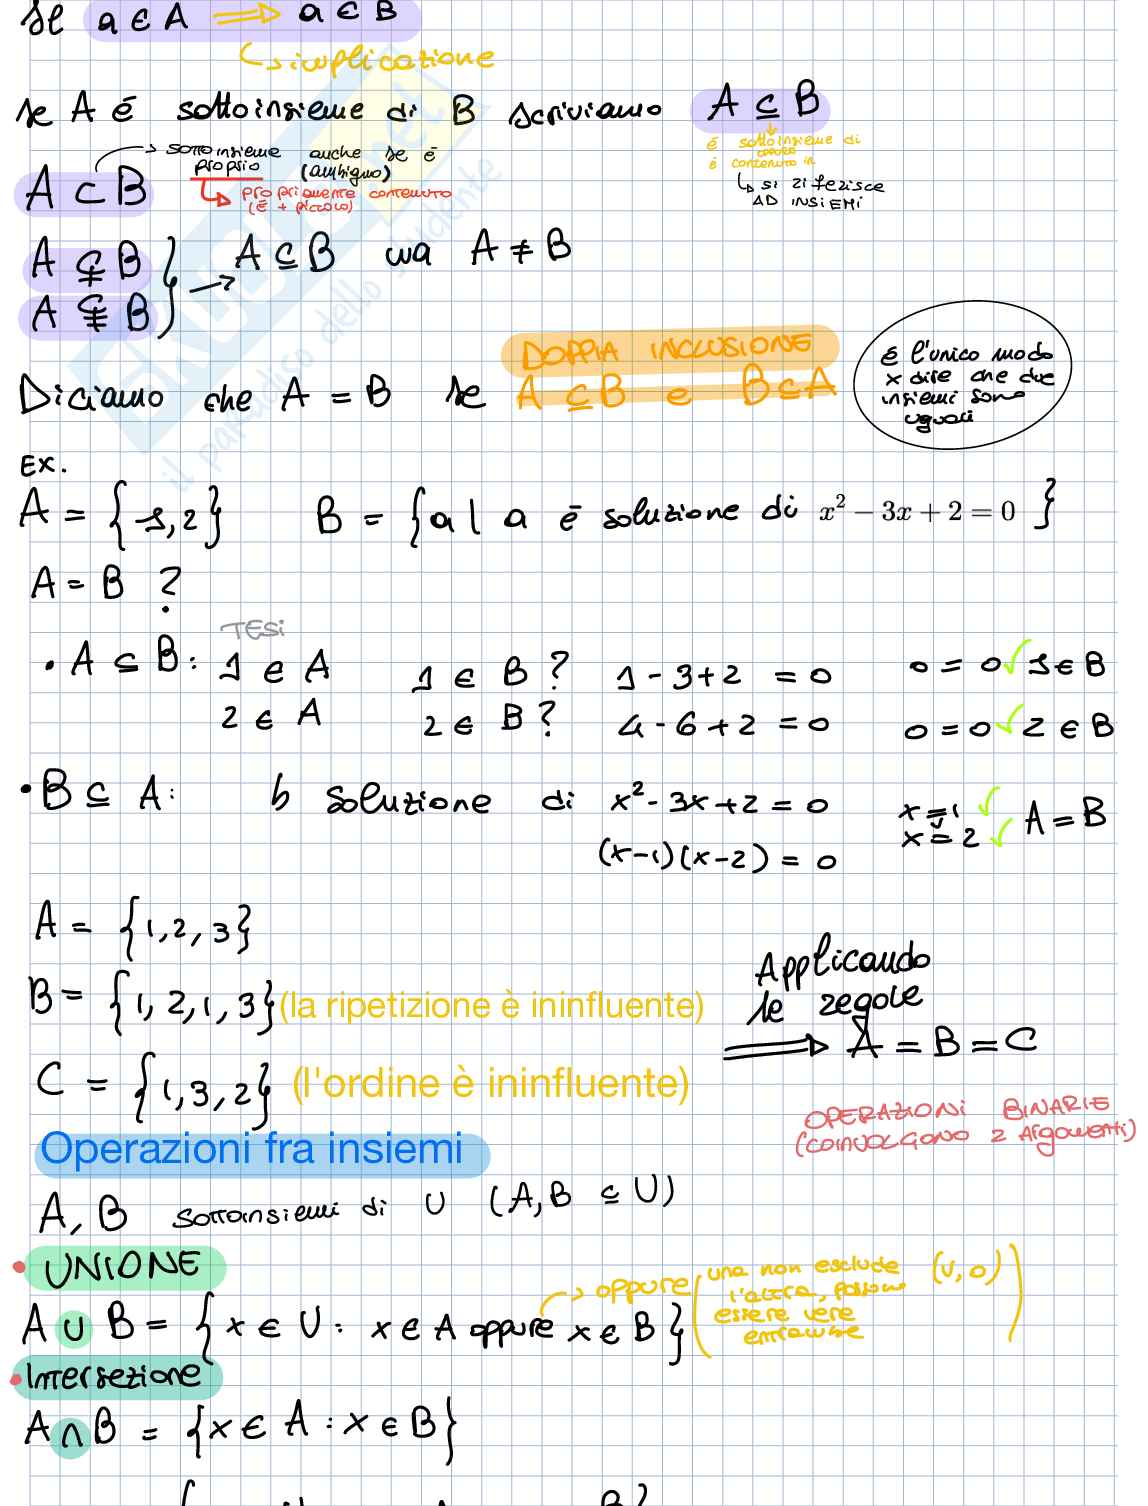 Se a ∈ A ⟹ a ∈ B
↳ implicazione
se A è sottoinsieme di B scriviamo A ⊆ B
è sottoinsieme di
oppure
è contenuto in
↳ si riferisce
AD INSIEMI
A ⊂ B → sottoinsieme proprio anche se è (ambiguo)
↳ propriamente contenuto
(è + piccolo)
A ⊊ B
A ⫋ B } → A ⊆ B ma A ≠ B
DOPPIA INCLUSIONE
Diciamo che A = B se A ⊆ B e B ⊆ A
è l'unico modo
x dire che due
insiemi sono
uguali
EX.
A = {1,2} B = {a | a è soluzione di x² − 3x + 2 = 0 }
A = B ?
TESI
• A ⊆ B: 1 ∈ A 1 ∈ B ? 1 - 3 + 2 = 0 0 = 0 ✓ 1 ∈ B
2 ∈ A 2 ∈ B ? 4 - 6 + 2 = 0 0 = 0 ✓ 2 ∈ B
• B ⊆ A: b soluzione di x² - 3x + 2 = 0 x = 1 ✓
(x-1)(x-2) = 0 x = 2 ✓ A = B
A = {1,2,3}
B = {1,2,1,3} (la ripetizione è ininfluente)
C = {1,3,2} (l'ordine è ininfluente)
Applicando
le regole
⟹ A = B = C
OPERAZIONI BINARIE
(COINVOLGONO 2 Argomenti)
Operazioni fra insiemi
A, B sottoinsiemi di U (A, B ⊆ U)
• UNIONE
A ∪ B = {x ∈ U : x ∈ A oppure x ∈ B}
→ oppure (una non esclude (V, O)
l'altra, possono
essere vere
entrambe)
• Intersezione
A ∩ B = {x ∈ A : x ∈ B}